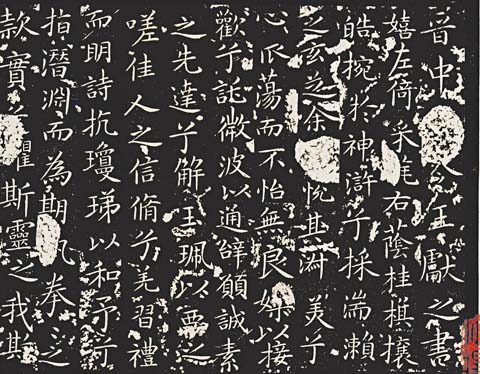 晉中令王獻之書
嬉左倚采旄右蔭桂棋攘
皓捥於神滸兮採湍瀨
之玄芝余悅其淑美兮
心振蕩而不怡無良媒以接
歡兮託微波以通辭願誠素
之先達兮解玉珮以要之
嗟佳人之信脩兮羌習禮
而明詩抗瓊珶以和予兮
指潛淵而為期執拳之
款實懼斯靈之我欺